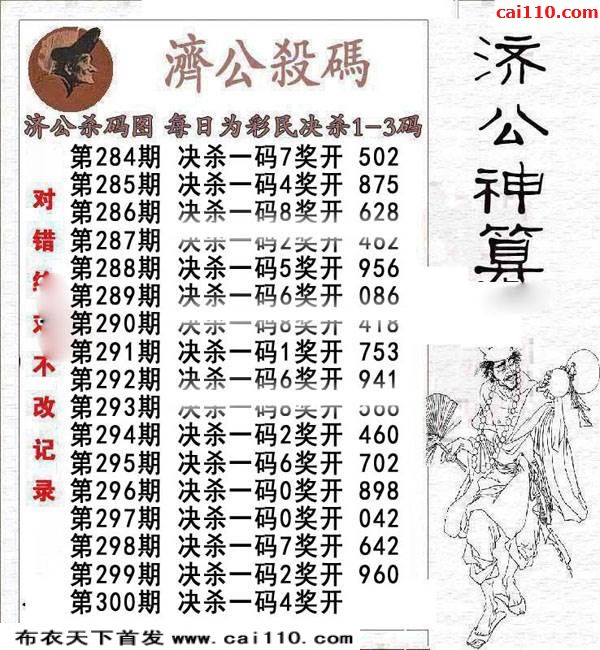 cai110.com
濟公殺碼
济公杀码图 每日为彩民决杀1-3码
第284期 决杀一码7奖开 502
第285期 决杀一码4奖开 875
第286期 决杀一码8奖开 628
第287期 决杀一码2奖开 462
第288期 决杀一码5奖开 956
第289期 决杀一码6奖开 086
第290期 决杀一码8奖开 418
第291期 决杀一码1奖开 753
第292期 决杀一码6奖开 941
第293期 决杀一码 奖开
第294期 决杀一码2奖开 460
第295期 决杀一码6奖开 702
第296期 决杀一码0奖开 898
第297期 决杀一码0奖开 042
第298期 决杀一码7奖开 642
第299期 决杀一码2奖开 960
第300期 决杀一码4奖开
对错 不改记录
济公神算
布衣天下首发 www.cai110.com